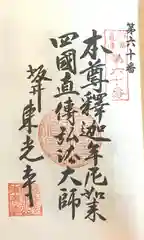 第六十番
本尊釋迦牟尼如来
四國直傳弘法大師
坂井東光寺